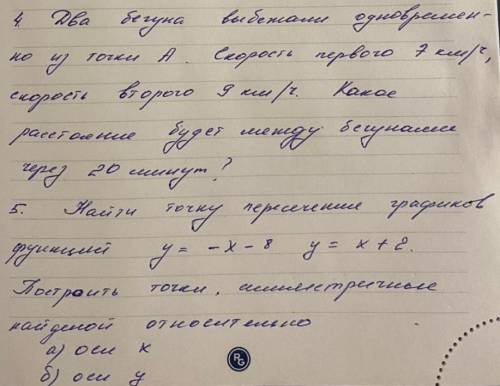 4. Два бегуна выбежали одновремен-
но из точки А. Скорость первого 7 км/ч,
скорость второго 9 км/ч. Какое
расстояние будет между бегунами
через 20 минут?
5. Найти точку пересечения графиков
функций y = -x - 8 y = x + 2.
Построить точки, симметричные
найденой относительно
а) оси x
PG
б) оси y